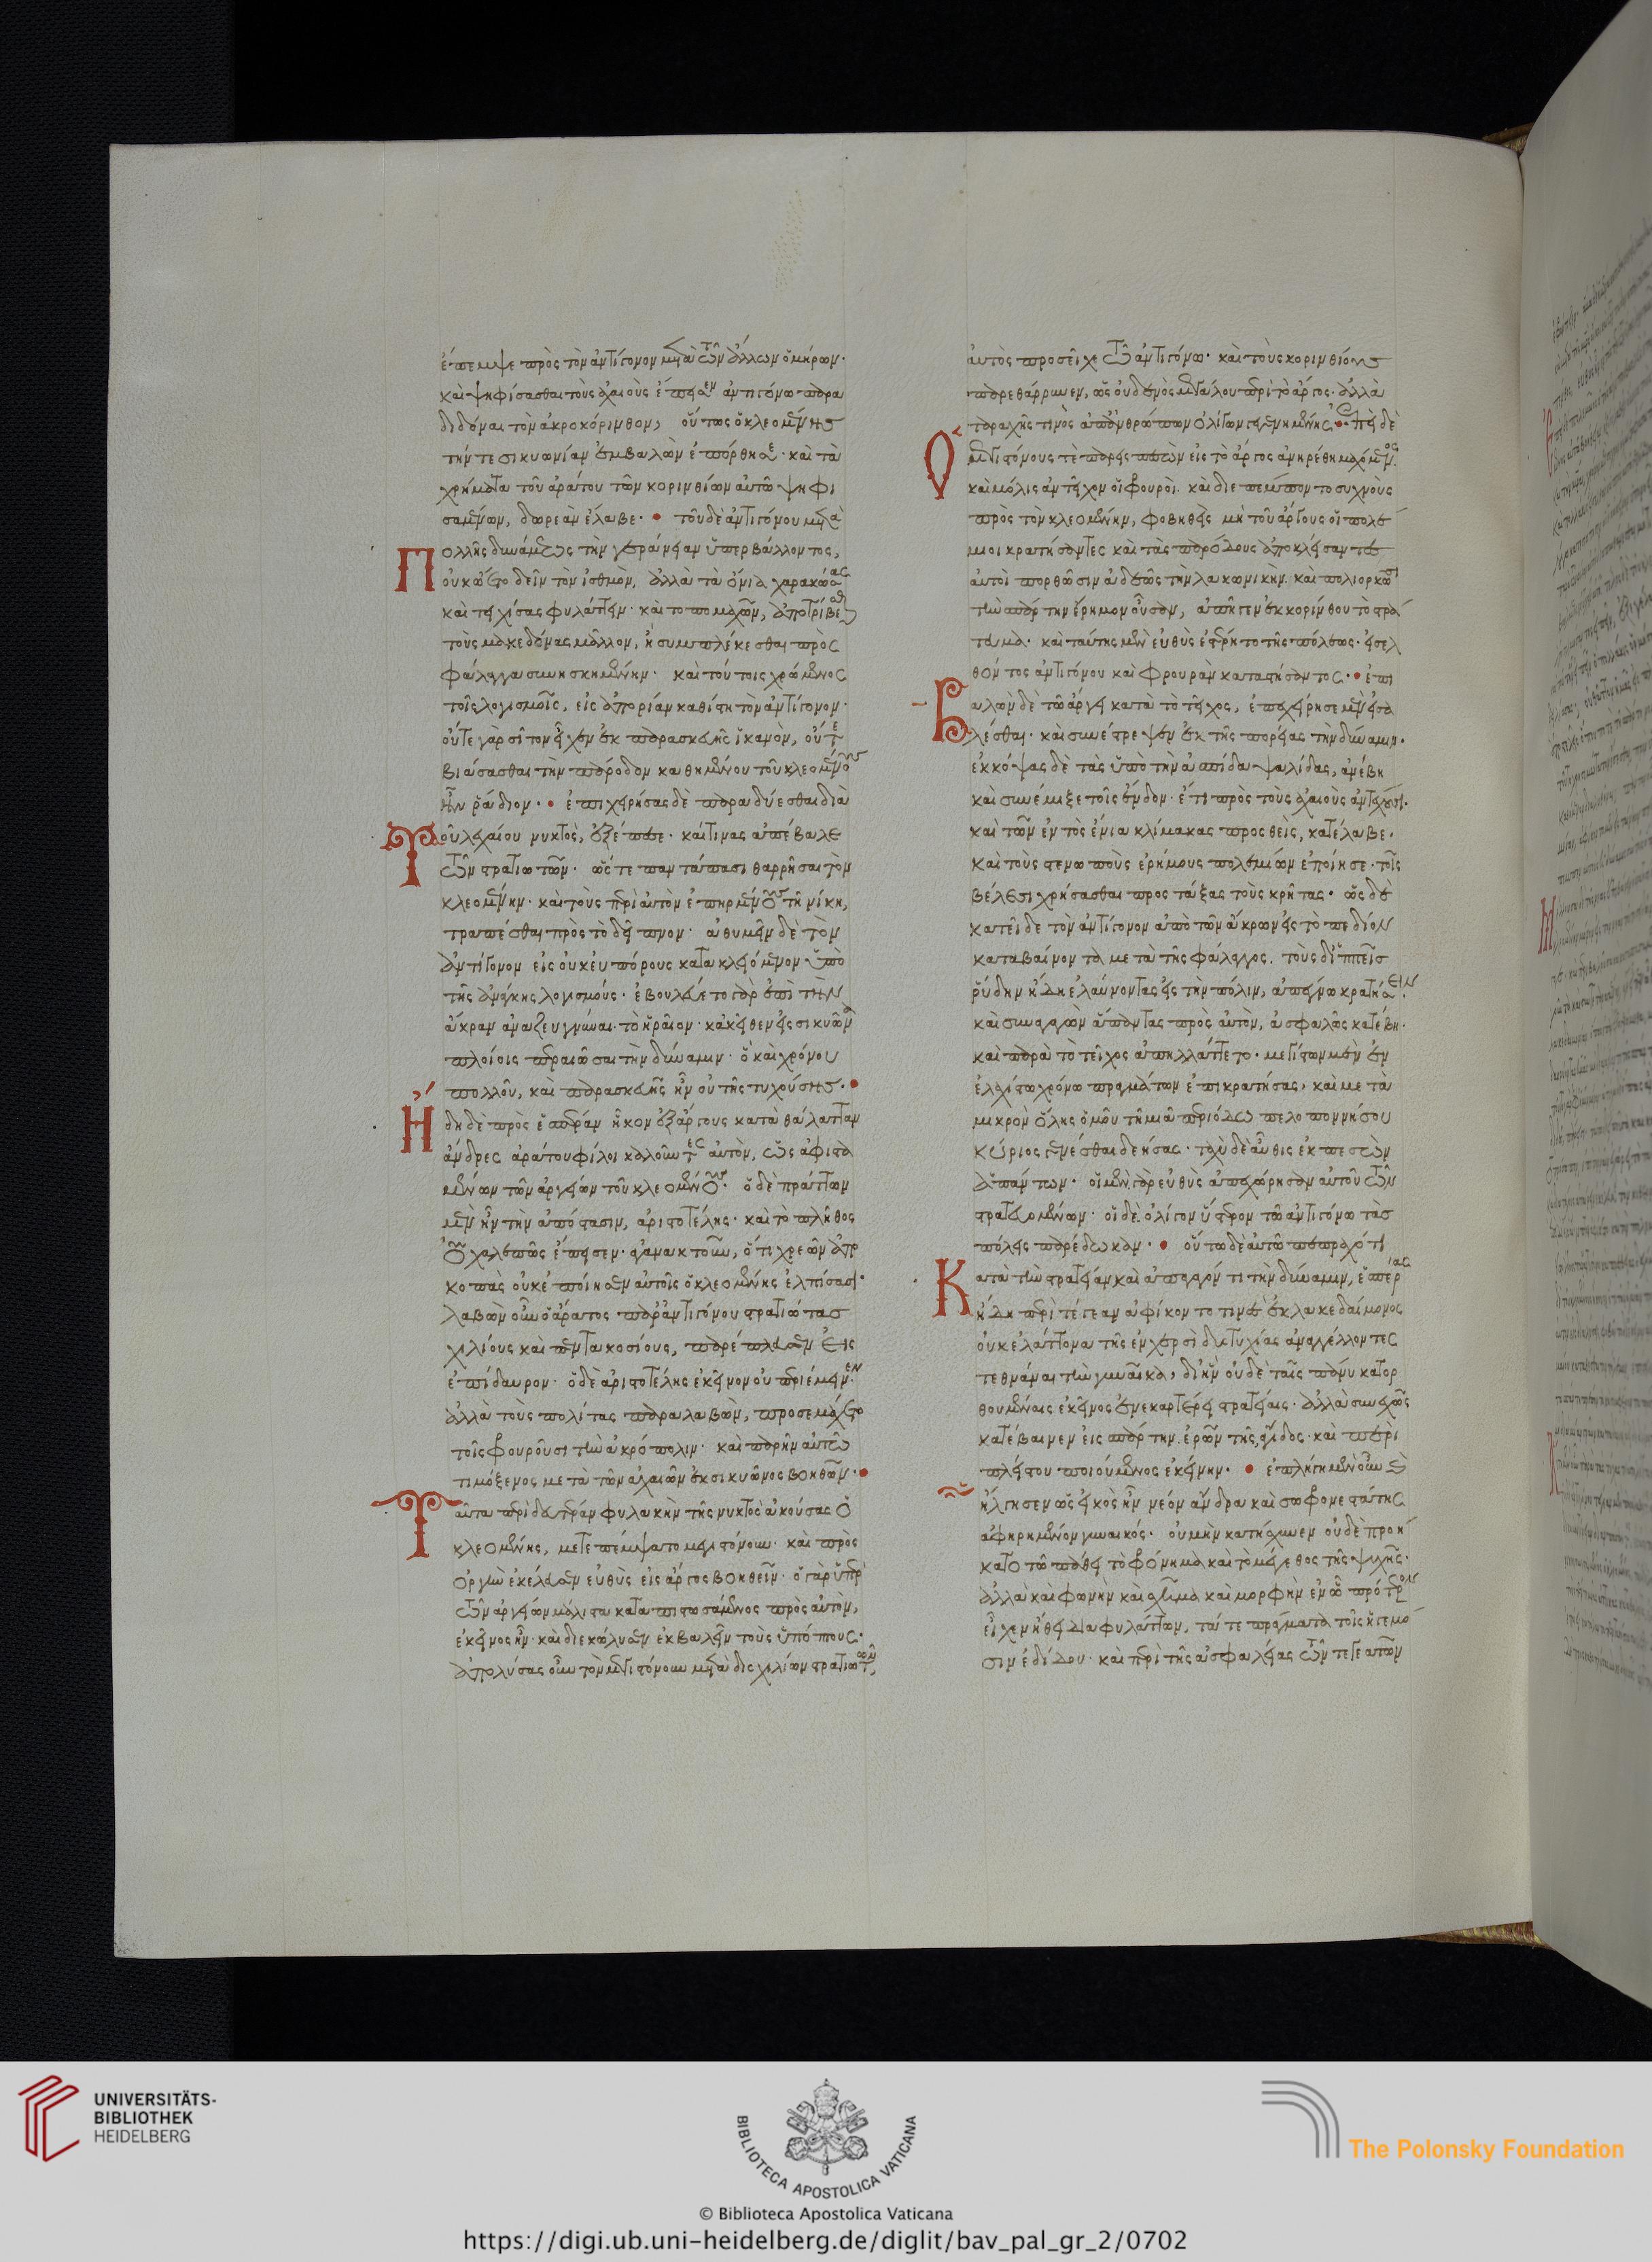 ἔπεμψε πρὸς τὸν ἀντίγονον μετὰ τῶν ἄλλων ὁμήρων·
καὶ ψηφίσασθαι τοὺς ἀχαιοὺς ἔπεισεν ἀντιγόνω παρα
διδόναι τὸν ἀκροκόρινθον, οὕτως ὁ κλεομένης
τήν τε σικυωνίαν ἐμβαλὼν ἐπόρθησε· καὶ τὰ
χρήματα τοῦ ἀράτου τῶν κορινθίων αὐτῶ ψηφι
σαμένων, δωρεὰν ἔλαβε· τοῦ δὲ ἀντιγόνου μετὰ
Πολλῆς δυνάμεως τὴν γεράνειαν ὑπερβάλλοντος,
οὐκ ᾤετο δεῖν τὸν ἰσθμὸν, ἀλλὰ τὰ ὄνια χαρακώσας
καὶ τειχίσας φυλάττειν· καὶ τοπομαχῶν, ἀποτρίβεσθαι
τοὺς μακεδόνας μᾶλλον, ἢ συμπλέκεσθαι πρὸς
φάλαγγα συνησκημένην· καὶ τούτοις χρώμενος
τοῖς λογισμοῖς, εἰς ἀπορίαν καθίστη τὸν ἀντίγονον·
οὔτε γὰρ σῖτον εἶχεν ἐκ παρασκευῆς ἱκανὸν, οὔτε
βιάσασθαι τὴν πάροδον καθημένου τοῦ κλεομένους
ἦν ῥάδιον· ἐπιχειρήσας δὲ παραδύεσθαι διὰ
Τοῦ λεχαίου νυκτὸς, ἐξέπεσε· καί τινας ἀπέβαλε
τῶν στρατιωτῶν· ὥστε παντάπασι θαρρῆσαι τὸν
κλεομένην· καὶ τοὺς περὶ αὐτὸν ἐπηρμένους τῆ νίκη,
τραπέσθαι πρὸς τὸ δεῖπνον· ἀθυμεῖν δὲ τὸν
ἀντίγονον εἰς οὐκ εὐπόρους κατακλειόμενον ὑπὸ
τῆς ἀνάγκης λογισμούς· ἐβουλεύετο γὰρ ἐπὶ τὴν
ἄκραν ἀναζευγνύναι τὸ ἡραῖον· κἀκεῖθεν εἰς σικυῶνα
πλοίοις περαιῶσαι τὴν δύναμιν· ὃ καὶ χρόνου
πολλοῦ, καὶ παρασκευῆς ἦν οὐ τῆς τυχούσης·
Ἤδη δὲ πρὸς ἑσπέραν ἧκον ἐξ ἄργους κατὰ θάλατταν
ἄνδρες ἀράτου φίλοι καλοῦντες αὐτὸν, ὡς ἀφιστα
μένων τῶν ἀργείων τοῦ κλεομένους· ὁ δὲ πράττων
μὲν ἦν τὴν ἀπόστασιν, ἀριστοτέλης· καὶ τὸ πλῆθος
οὐ χαλεπῶς ἔπεισεν· ἀγανακτοῦν, ὅτι χρεῶν ἀπο
κοπὰς οὐκ ἐποίησεν αὐτοῖς ὁ κλεομένης ἐλπίσασι·
λαβὼν οὖν ὁ ἄρατος παρ' ἀντιγόνου στρατιώτας
χιλίους καὶ πεντακοσίους, παρέπλευσεν εἰς
ἐπίδαυρον· ὁ δὲ ἀριστοτέλης ἐκεῖνον οὐ περιέμεινεν·
ἀλλὰ τοὺς πολίτας παραλαβὼν, προσεμάχετο
τοῖς φρουροῦσι τὴν ἀκρόπολιν· καὶ παρῆν αὐτῶ
τιμόξενος μετὰ τῶν ἀχαιῶν ἐκ σικυῶνος βοηθῶν·
Ταῦτα περὶ δευτέραν φυλακὴν τῆς νυκτὸς ἀκούσας ὁ
κλεομένης, μετεπέμψατο μεγιστόνουν· καὶ πρὸς
ὀργὴν ἐκέλευσεν εὐθὺς εἰς ἄργος βοηθεῖν· ὁ γὰρ ὑπὲρ
τῶν ἀργείων μάλιστα καταπιστωσάμενος πρὸς αὐτὸν,
ἐκεῖνος ἦν· καὶ διεκώλυσεν ἐκβαλεῖν τοὺς ὑπόπτους·
ἀπολύσας οὖν τὸν μεγιστόνουν μετὰ δισχιλίων στρατιωτῶν,
αὐτὸς προσεῖχε τῶ ἀντιγόνω· καὶ τοὺς κορινθίους
παρεθάρρυνεν, ὡς οὐδενὸς μεγάλου περὶ τὸ ἄργος· ἀλλὰ
ταραχῆς τινὸς ἀπ' ἀνθρώπων ὀλίγων γενομένης· Ἐπεὶ δὲ
Ὁ μεγιστόνους τὲ παρεισπεσὼν εἰς τὸ ἄργος ἀνηρέθη μαχόμενος·
καὶ μόλις ἀντεῖχον οἱ φρουροὶ· καὶ διέπεμπον το συχνοὺς
πρὸς τὸν κλεομένην, φοβηθεὶς μὴ τοῦ ἄργους οἱ πολέ
μιοι κρατήσαντες καὶ τὰς παρόδους ἀποκλείσαντες
αὐτοὶ πορθῶσιν ἀδεῶς τὴν λακωνικὴν· καὶ πολιορκῶσι
τὴν σπάρτην ἔρημον οὖσαν, ἀπῆγεν ἐκ κορίνθου τὸ στρά
τευμα· καὶ ταύτης μὲν εὐθὺς ἐστέρητο τῆς πόλεως· εἰσελ
θόντος ἀντιγόνου καὶ φρουρὰν καταστήσαντος· ἐπι
Βαλὼν δὲ τῶ ἄργει κατὰ τὸ τεῖχος, ἐπεχείρησε μὲν εἰσα
λέσθαι· καὶ συνέστρεψεν ἐκ τῆς πορείας τὴν δύναμιν·
ἐκκόψας δὲ τὰς ὑπὸ τὴν ἀσπίδα ψαλίδας, ἀνέβη
καὶ συνέμιξε τοῖς ἔνδον· ἔτι πρὸς τοὺς ἀχαιοὺς ἀντέχουσι·
καὶ τῶν ἐντὸς ἔνια κλίμακας προσθεὶς, κατέλαβε·
καὶ τοὺς στενωποὺς ἐρήμους πολεμίων ἐποίησε· τοῖς
βέλεσι χρήσασθαι προστάξας τοὺς κρῆτας· ὡς δὲ
κατεῖδε τὸν ἀντίγονον ἀπὸ τῶν ἄκρων εἰς τὸ πεδίον
καταβαίνοντα μετὰ τῆς φάλαγγος. τοὺς δ' ἱππεῖς
ῥύδην ἤδη ἐλαύνοντας εἰς τὴν πόλιν, ἀπέγνω κρατήσειν·
καὶ συναγαγὼν ἅπαντας πρὸς αὐτὸν, ἀσφαλῶς κατέβη·
καὶ παρὰ τὸ τεῖχος ἀπηλλάττετο· μεγίστων μὲν ἐν
ἐλαχίστω χρόνω πραγμάτων ἐπικρατήσας, καὶ μετὰ
μικρὸν ὅλης ὁμοῦ τῆ μιᾶ περιόδω πελοποννήσου
κύριος γενέσθαι δεήσας· ταχὺ δὲ αὖθις ἐκπεσὼν
ἁπάντων· οἱ μὲν γὰρ εὐθὺς ἀπεχώρησαν αὐτοῦ τῶν
στρατευομένων· οἱ δὲ ὀλίγον ὕστερον τῶ ἀντιγόνω τὰς
πόλεις παρέδωκαν· οὕτω δὲ αὐτῶ πεπραχότι
Κατὰ τὴν στρατείαν καὶ ἀπαγαγόντι τὴν δύναμιν, ἑσπέρας
ἤδη περὶ τέγεαν ἀφίκοντό τινες ἐκ λακεδαίμονος
οὐκ ἐλάττονα τῆς ἐν χερσὶ δυστυχίας ἀναγγέλλοντες
τεθνάναι τὴν γυναῖκα, δι' ἣν οὐδὲ ταῖς πάνυ κατορ
θουμέναις ἐκεῖνος ἐνεκαρτέρει στρατείαις· ἀλλὰ συνεχῶς
κατέβαινεν εἰς σπάρτην ἐρῶν τῆς ἄγιδος· καὶ περὶ
πλείστου ποιούμενος ἐκείνην· ἐπλήγη μὲν οὖν καὶ
ἤλγησεν ὡς εἰκὸς ἦν νέον ἄνδρα καὶ σωφρονεστάτης
ἀφηρημένον γυναικός· οὐ μὴν κατῄσχυνεν οὐδὲ προή
κατο τῶ πάθει τὸ φρόνημα καὶ τὸ μέγεθος τῆς ψυχῆς·
ἀλλὰ καὶ φωνὴν καὶ σχῆμα καὶ μορφὴν ἐν ᾧ πρότερον
εἶχεν ἤθει διαφυλάττων, τά τε προστάγματα τοῖς ἡγεμό
σιν ἐδίδου· καὶ περὶ τῆς ἀσφαλείας τῶν τεγεατῶν
UNIVERSITÄTS-
BIBLIOTHEK
HEIDELBERG
BIBLIOTECA APOSTOLICA VATICANA
The Polonsky Foundation
© Biblioteca Apostolica Vaticana
https://digi.ub.uni-heidelberg.de/diglit/bav_pal_gr_2/0702